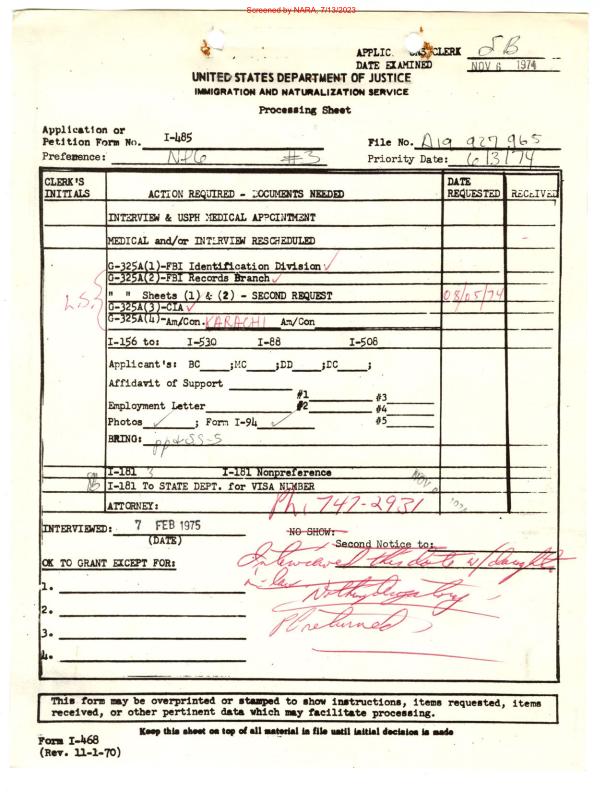 Screened by NARA, 7/13/2023
APPLIC. CLERK JB
DATE EXAMINED NOV 6 1974
UNITED STATES DEPARTMENT OF JUSTICE
IMMIGRATION AND NATURALIZATION SERVICE
Processing Sheet
Application or
Petition Form No. I-485 File No. A19 927 965
Preference: NP6 #3 Priority Date: 6/3/74
CLERK'S INITIALS ACTION REQUIRED - DOCUMENTS NEEDED DATE REQUESTED RECEIVED
INTERVIEW & USPH MEDICAL APPOINTMENT
MEDICAL and/or INTERVIEW RESCHEDULED
G-325A(1)-FBI Identification Division ✓
G-325A(2)-FBI Records Branch ✓
L.S. " " Sheets (1) & (2) - SECOND REQUEST 08/05/74
G-325A(3)-CIA ✓
G-325A(4)-Am/Con. KARACHI Am/Con
I-156 to: I-530 I-88 I-508
Applicant's: BC ;MC ;DD ;DC ;
Affidavit of Support
Employment Letter #1 #2 #3 #4
Photos ✓ ; Form I-94 ✓ #5
BRING: pp & SS-5
I-181 3 I-181 Nonpreference
I-181 To STATE DEPT. for VISA NUMBER NOV
ATTORNEY: Ph. 747-2931
INTERVIEWED: 7 FEB 1975 NO SHOW:
(DATE) Second Notice to:
OK TO GRANT EXCEPT FOR: Interviewed this date w/ daughter
1. in-law
2. Nothing derogatory
3. PP returned
4.
This form may be overprinted or stamped to show instructions, items requested, items
received, or other pertinent data which may facilitate processing.
Keep this sheet on top of all material in file until initial decision is made
Form I-468
(Rev. 11-1-70)